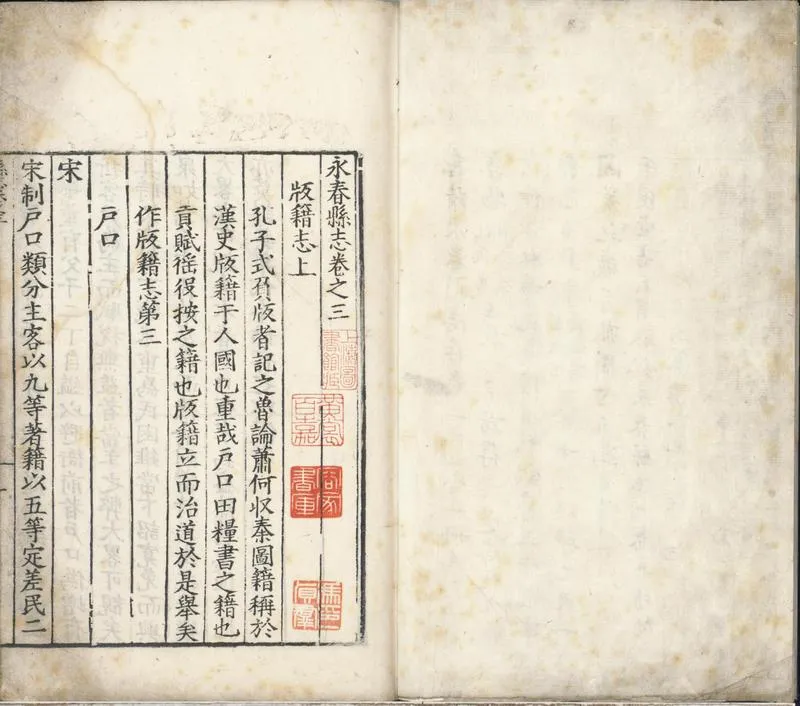 永春縣志卷之三
版籍志上
孔子式負版者記之魯論蕭何収秦圖籍稱於
漢史版籍于人國也重哉戶口田糧書之籍也
貢賦徭役按之籍也版籍立而治道於是舉矣
作版籍志第三
戶口
宋
宋制戶口類分主客以九等著籍以五等定差民二
上海圖書館藏